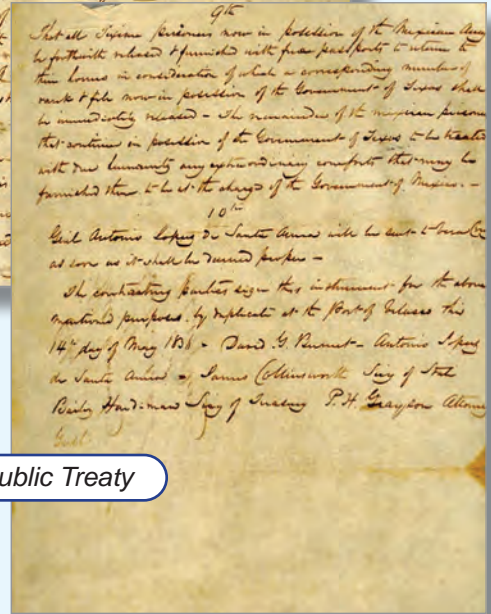 9th
That all Texian prisoners now in possession of the Mexican Army
be forthwith released & furnished with free passports to return to
their homes in consideration of which a corresponding number of
rank & file now in possession of the Government of Texas shall
be immediately released – The remainder of the mexican prisoners
that continue in possession of the Government of Texas to be treated
with due humanity any extraordinary comforts that may be
furnished them to be at the charge of the Government of Mexico. –
10th
Genl Antonio Lopez de Santa Anna will be sent to Vera Cruz
as soon as it shall be deemed proper –
The contracting parties sign this instrument for the above
mentioned purposes, by duplicate at the Port of Velasco this
14th day of May 1836 – David G. Burnet – Antonio Lopez
de Santa Anna – James Collinsworth Secy of State
Bailey Hardiman Secy of Treasury P. H. Grayson Attorney
Genl
ublic Treaty